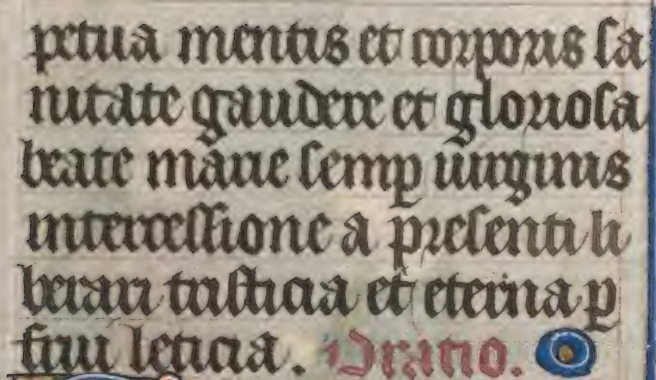 petua mentis et corporis sa
nitate gaudere et gloriosa
beate marie semꝑ uirginis
intercessione a presenti li
berari tristicia et eterna ꝑ
frui leticia. Oratio.